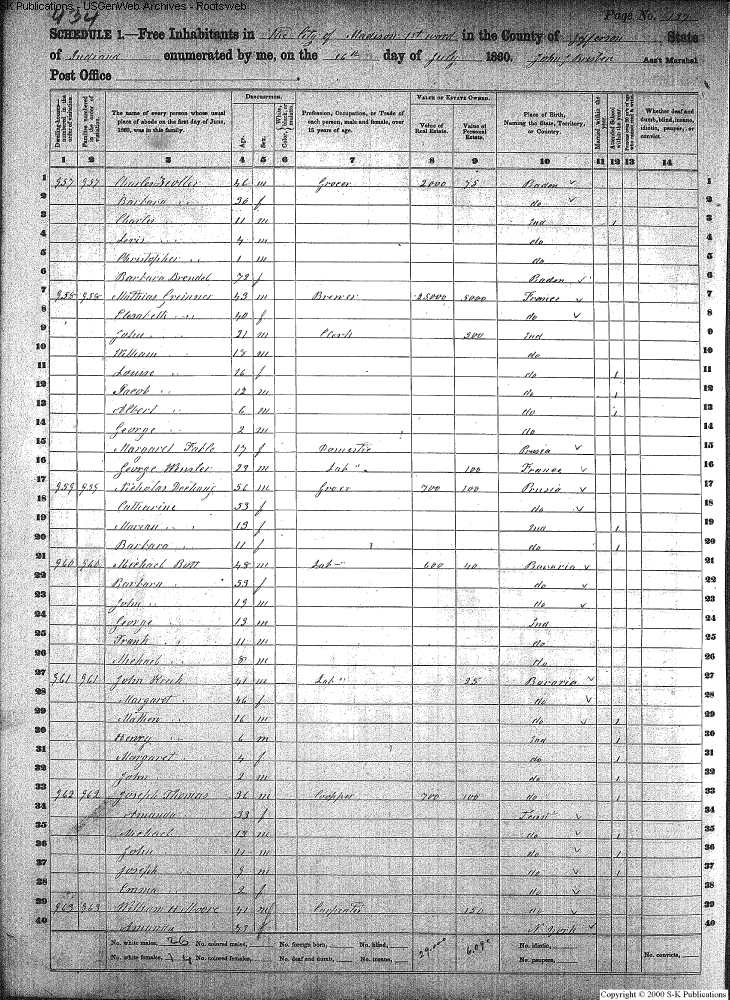 S-K Publications - USGenWeb Archives - Rootsweb
434 Page No. 127
SCHEDULE 1.—Free Inhabitants in The City of Madison 1st ward in the County of Jefferson State
of Indiana enumerated by me, on the 16th day of July 1860. John J Ass't Marshal
Post Office
DESCRIPTION. VALUE OF ESTATE OWNED.
Dwelling-houses—numbered in the order of visitation. Families numbered in the order of visitation. The name of every person whose usual place of abode on the first day of June, 1860, was in this family. Age. Sex. Color, White, black, or mulatto. Profession, Occupation, or Trade of each person, male and female, over 15 years of age. Value of Real Estate. Value of Personal Estate. Place of Birth, Naming the State, Territory, or Country. Married within the year. Attended School within the year. Whether deaf and dumb, blind, insane, idiotic, pauper, or convict.
1 2 3 4 5 6 7 8 9 10 11 12 13 14
1 957 957 Charles 46 m Grocer 2000 75 Baden 1
2 Barbara 36 f do 2
3 Charles 11 m Ind 1 3
4 Lewis 4 m do 4
5 Christopher 1 m do 5
6 Barbara Brendel 72 f Baden 6
7 958 958 Mathias Greinner 43 m Brewer 25000 5000 France 7
8 Elizabeth 40 f do 8
9 John 21 m Clerk 300 Ind 9
10 William 18 m do 10
11 Louise 16 f do 1 11
12 Jacob 12 m do 1 12
13 Albert 6 m do 1 13
14 George 2 m do 14
15 Margaret Fable 17 f Domestic Prusia 15
16 George 29 m Lab" 100 France 16
17 959 959 Nicholas 56 m Grocer 700 100 Prusia 17
18 Catharine 53 f do 18
19 Marian 13 f Ind 1 19
20 Barbara 11 f do 1 20
21 960 960 Michael Bott 48 m Lab" 600 40 Bavaria 21
22 Barbara 39 f do 22
23 John 19 m do 23
24 George 13 m Ind 24
25 Frank 11 m do 25
26 Michael 8 m do 26
27 961 961 John 41 m Lab" 25 Bavaria 27
28 Margaret 46 f do 28
29 Mathew 16 m do 1 29
30 Henry 6 m Ind 1 30
31 Margaret 4 f do 1 31
32 John 2 m do 1 32
33 962 962 Joseph Thomas 36 m Coopper 700 100 do 1 33
34 Amanda 33 f 34
35 Michael 13 m do 1 35
36 John 11 m do 1 36
37 Joseph 9 m do 1 37
38 Emma 2 f do 38
39 963 963 William H Moore 41 m Carpenter 150 do 39
40 Amanda 43 f N. York 40
No. white males, 26 No. colored males, No. foreign born, No. blind, 29.000 No. idiotic,
No. white females, 14 No. colored females, No. deaf and dumb, No. insane, No. paupers, No. convicts,
Copyright © 2000 S-K Publications